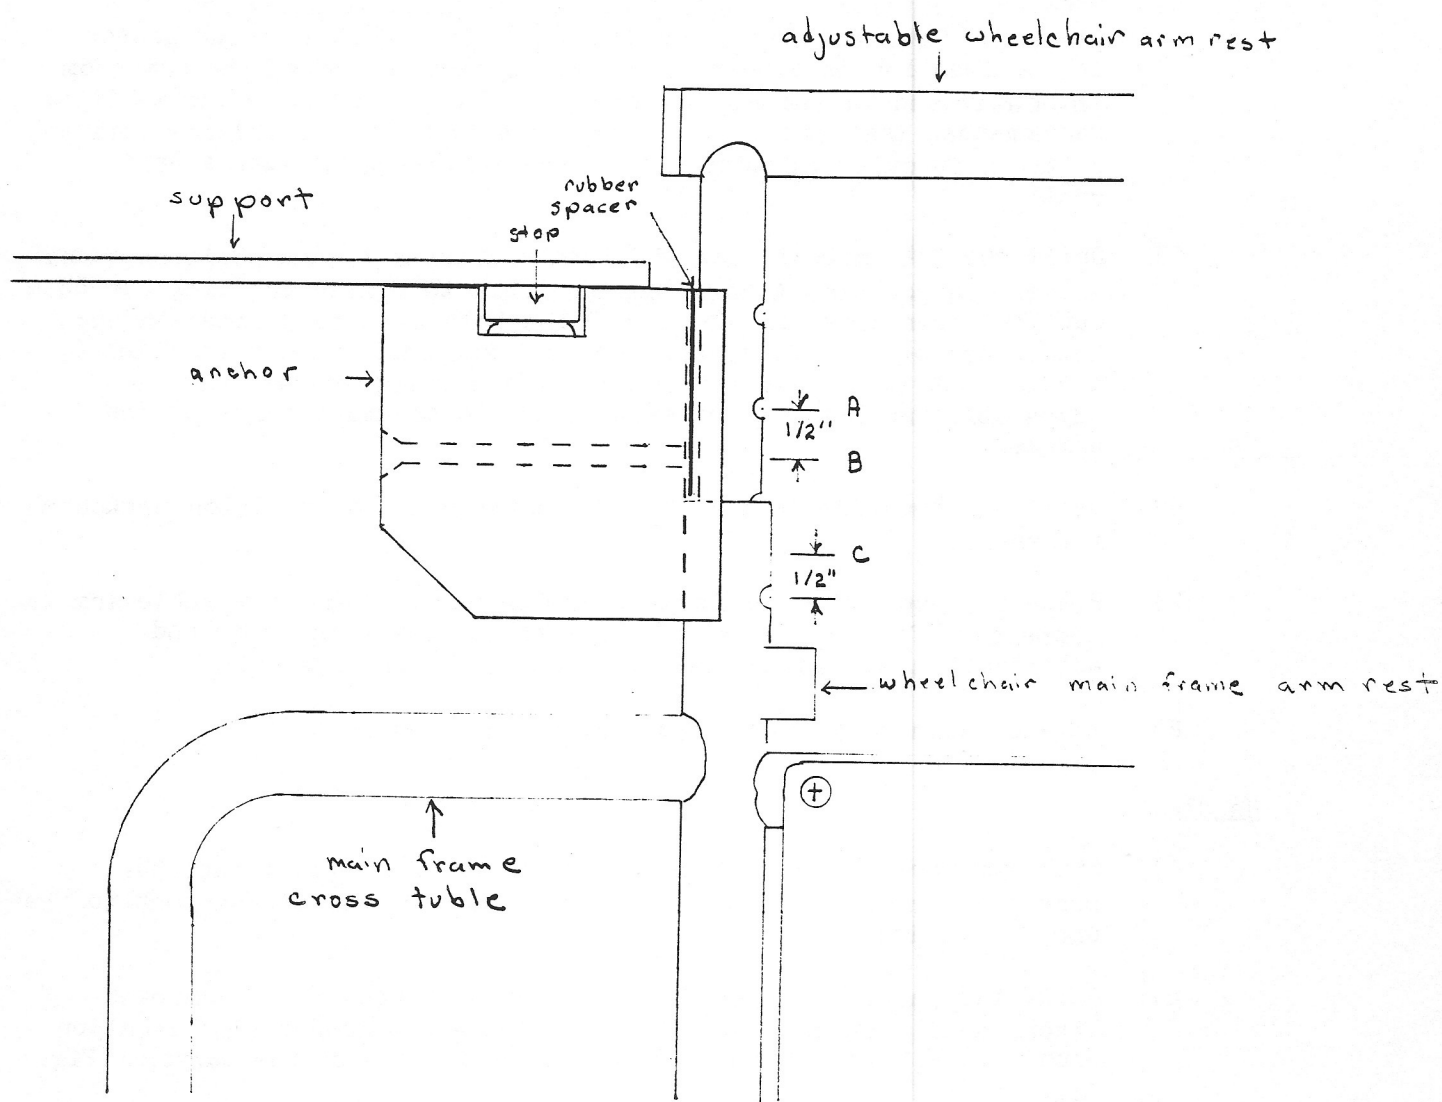 adjustable wheelchair arm rest
support
rubber
spacer
stop
anchor
A
1/2"
B
C
1/2"
wheelchair main frame arm rest
main frame
cross tuble